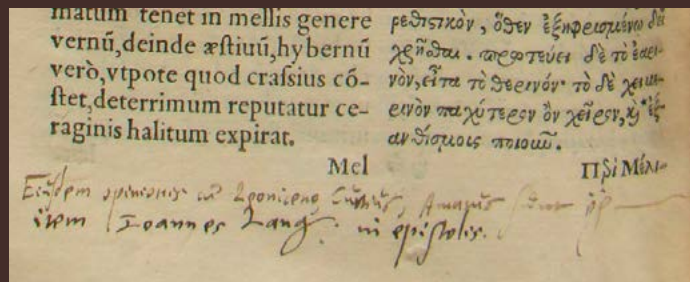 matum tenet in mellis genere
vernũ, deinde æſtiuũ, hybernũ
verò, vtpote quod craſsius cõ-
ſtet, deterrimum reputatur ce-
raginis halitum expirat.
Mel
ρεθιστικὸν, ὅθεν ἐξηφρισμένῳ δεῖ
χρῆσθαι. πρωτεύει δὲ τὸ ἐαρι-
νὸν, εἶτα τὸ θερινόν· τὸ δὲ χειμε-
ρινὸν παχύτερον ὂν χεῖρον, καὶ ἐξ
ανθίσμοις ποιοῦν.
Περὶ Μέλι-
Eiusdem opinionis
item Ioannes Lang. in epistolis.